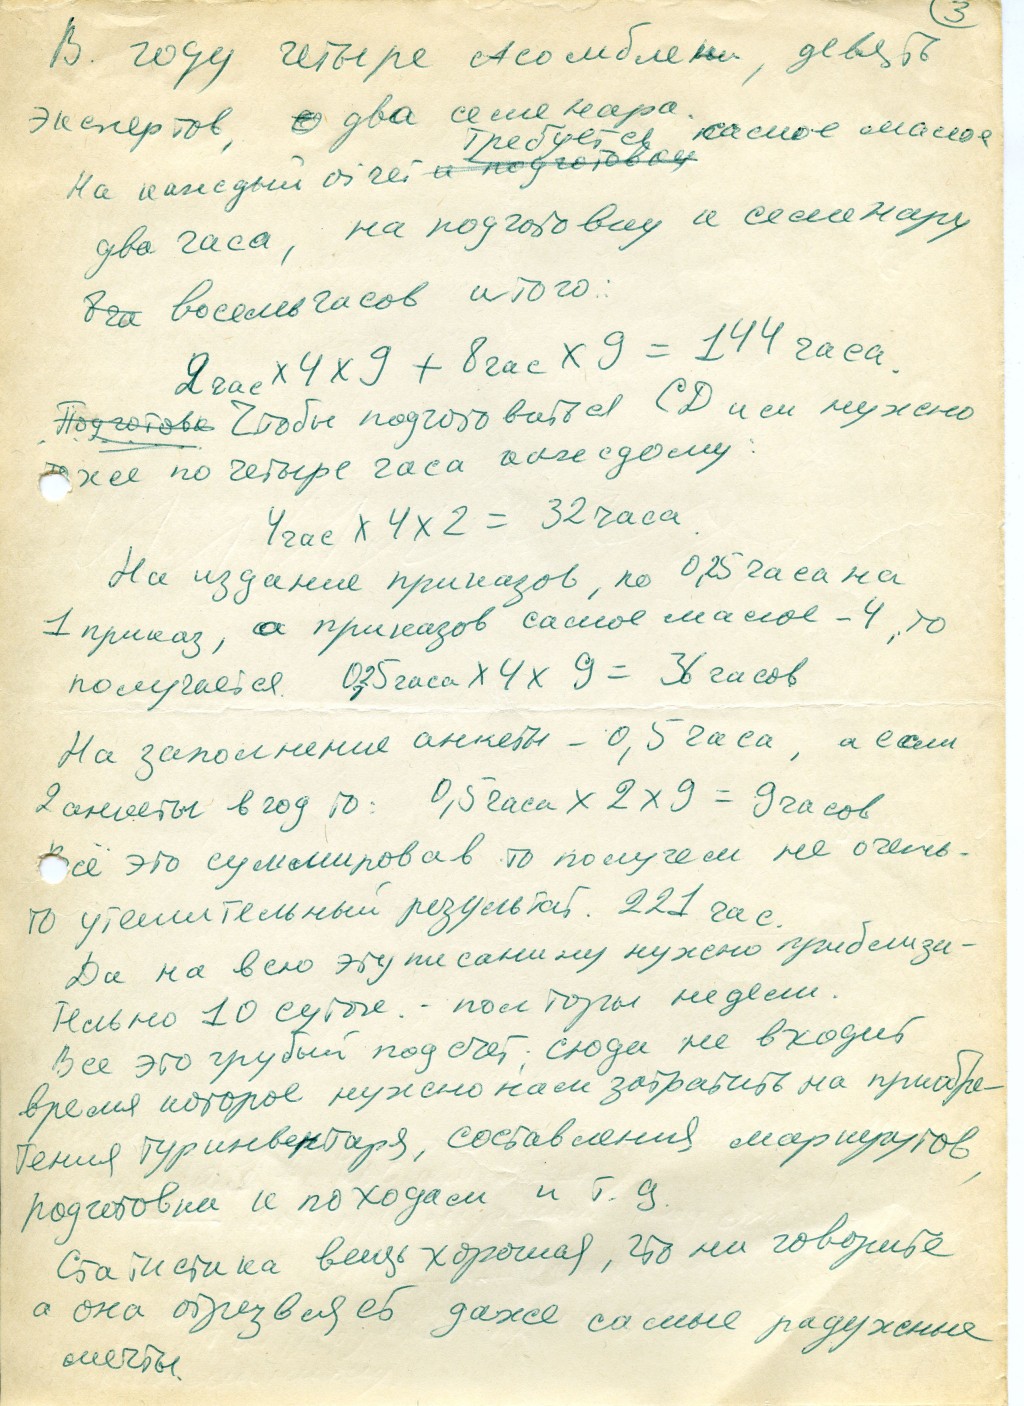 3
В. году четыре Асомблеи, девять
экспертов, два семенара.
Требуется самое малое
На каждый отчёт и подготовку
два часа, на подготовку к семенару
8ча восемь часов итого:
2час х 4 х 9 + 8час х 9 = 144 часа.
Подготовк Чтобы подготовиться СД и си нужно
тоже по четыре часа каждому:
4час х 4 х 2 = 32 часа.
На издание приказов, по 0,25 часа на
1 приказ, а приказов самое малое - 4, то
получается. 0,25 часа х 4 х 9 = 36 часов
На заполнение анкеты - 0,5 часа, а если
2 анкеты в год то: 0,5 часа х 2 х 9 = 9 часов
Всё это суммировав то получем не очень-
то утешительный результат. 221 час.
Да на всю эту писанину нужно приблизи-
тельно 10 суток. - полторы недели.
Все это грубый подсчёт, сюда не входит
время которое нужно нам затратить на приобре-
тения туринвентаря, составления маршрутов,
подготовки к походам и т.д.
Статистика вещь хорошая, что ни говорите
а она отрезвляет даже самые радужные
мечты.